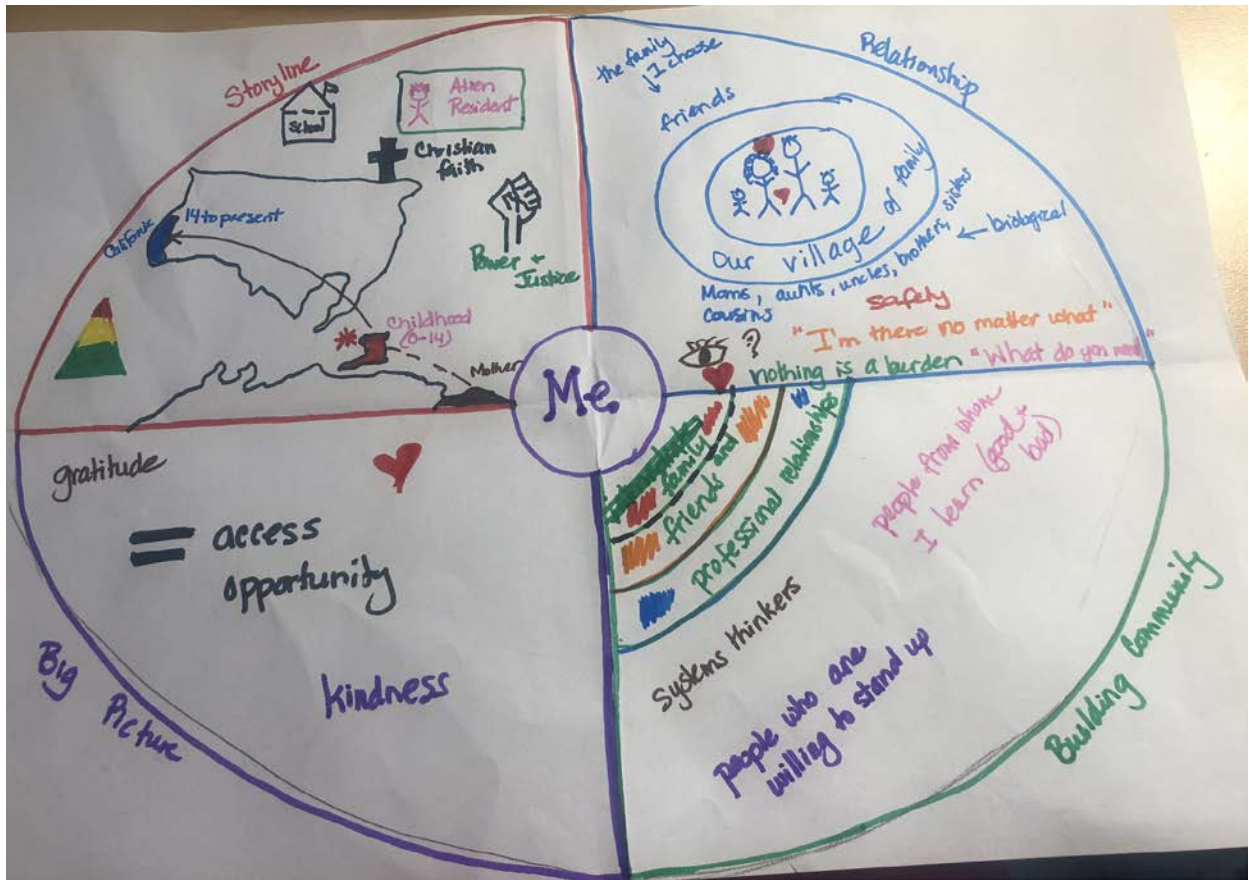 Storyline
School
Alien
Resident
Christian
faith
California
14 to present
Power +
Justice
Childhood
(0-14)
Mother
Relationship
the family
I choose
friends
Our village of family
Moms, aunts, uncles, brothers, sisters
cousins
biological
safety
?
"I'm there no matter what"
nothing is a burden
"What do you need"
Me
gratitude
= access
opportunity
kindness
Big
Picture
family
friends and
professional relationships
people from whom
I learn (good +
bad)
systems thinkers
people who are
willing to stand up
Building Community